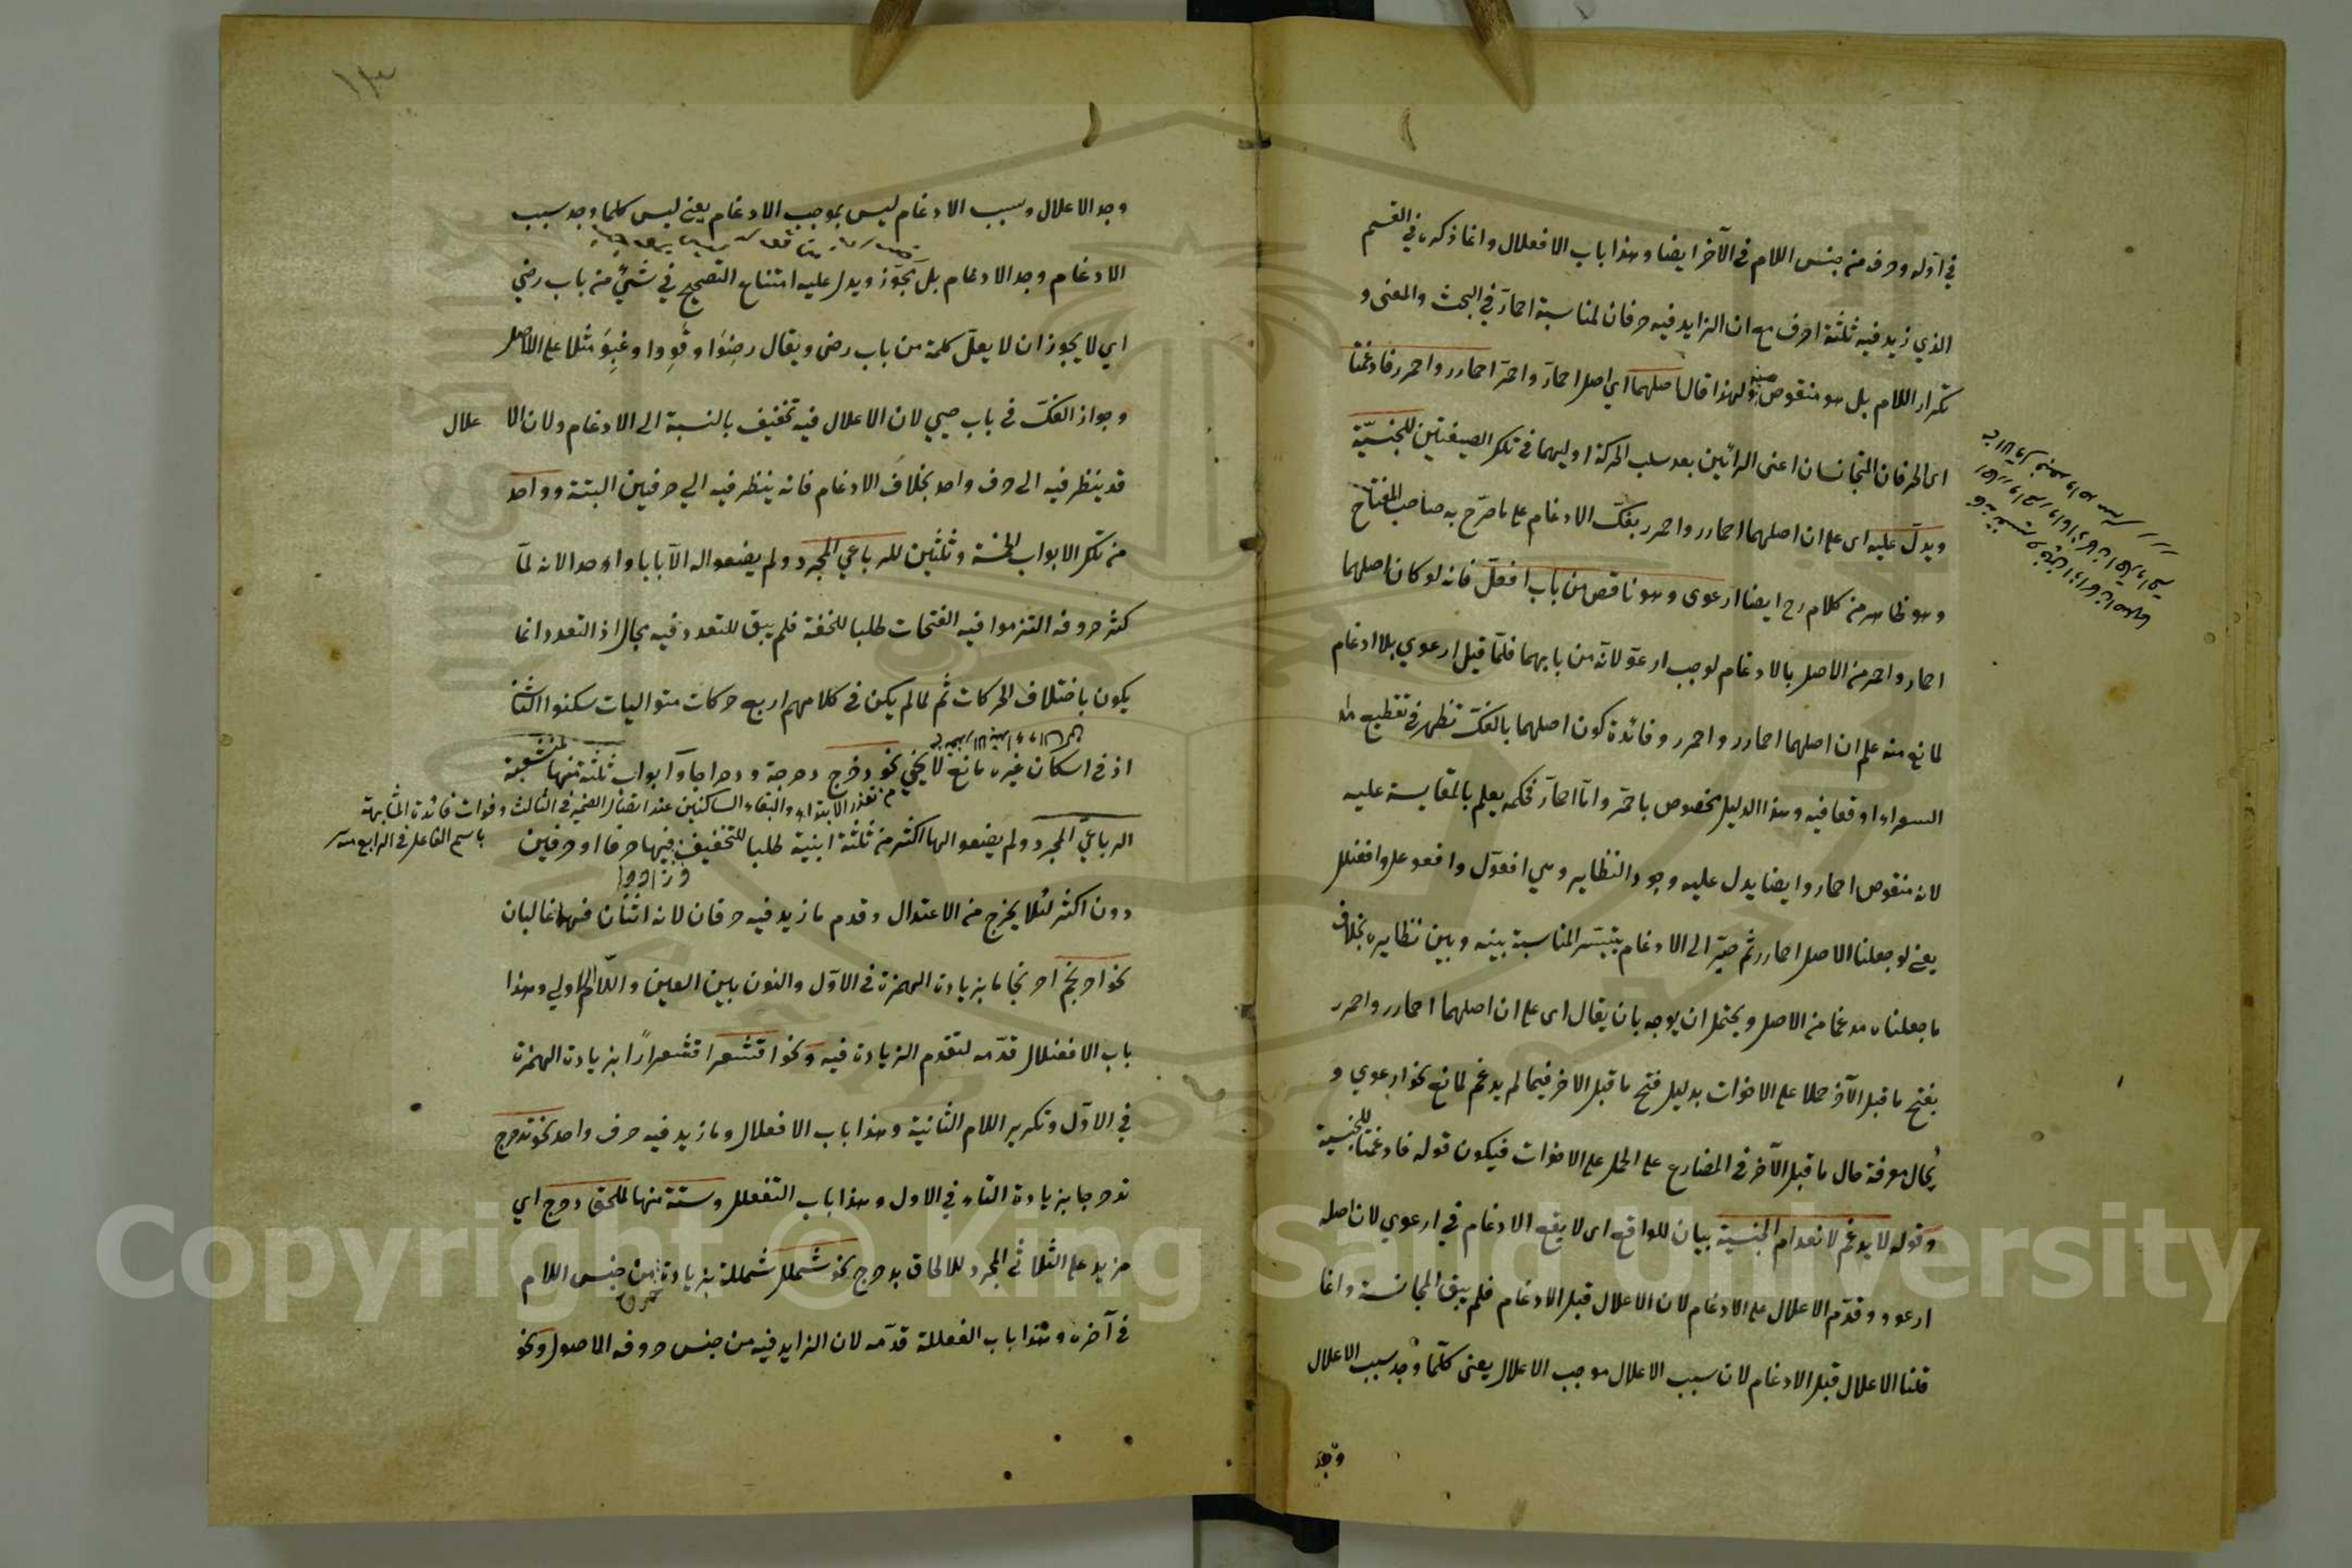 في اوله وحرف من جنس اللام في الآخر ايضا وهذا باب الافعلال وانما ذكره في القسم
الذي زيد فيه ثلثة احرف مع ان الزايد فيه حرفان لمناسبة احمارّ في البحث والمعنى و
تكرار اللام بل هو منقوص منه ولهذا قال اصلهما اي اصل احمارّ واحمرّ احمارر واحمرر فادغمتا
اى الحرفان المتجانسان اعنى الرائين بعد سلب الحركة اوليهما في تلك الصيغتين للجنسيّة
ويدلّ عليه اى على ان اصلهما احمارر واحمرر بفكّ الادغام على ما صرّح به صاحب المفتاح
وهو ظاهر من كلام رح ايضا ارعوى وهو ناقص من باب افعلّ فانه لو كان اصلهما
احمار واحمر من الاصل بالادغام لوجب ارعوّ لانّه من بابهما فلمّا قيل ارعوي بلا ادغام
لمانع منه علم ان اصلهما احمارر واحمرر وفائدة كون اصلهما بالفكّ تظهر في تقطيع
السعراء اوقعا فيه وهذا الدليل مخصوص باحمرّ وامّا احمارّ فحكمه يعلم بالمقايسة عليه
لانه منقوص احمار وايضا يدل عليه وجود النظاير وهي افعوّل وافعوعل وافعنلل
يعني لو جعلنا الاصل احمارر ثم صيّر الى الادغام يتيسّر المناسبة بينه وبين نظايره بخلاف
ما جعلناه مدغما من الاصل ويحتمل ان يوجه بان يقال اى على ان اصلهما احمارر واحمرر
بفتح ما قبل الآخر حملا على الاخوات بدليل فتح ما قبل الاخر فيما لم يدغم لمانع نحو ارعوي و
يحال معرفة حال ما قبل الآخر في المضارع على الحمل على الاخوات فيكون قوله فادغمتا للجنسية
وقوله لا يدغم لانعدام الجنسية بيان للواقع اى لا يقع الادغام في ارعوي لان اصله
ارعوو وقدّم الاعلال على الادغام لان الاعلال قبل الادغام فلم يبق المجانسة وانما
قلنا الاعلال قبل الادغام لان سبب الاعلال موجب الاعلال يعنى كلّما وجد سبب الاعلال
وجد
١٣
وجد الاعلال وسبب الادغام ليس بموجب الادغام يعني ليس كلما وجد سبب
الادغام وجد الادغام بل يجوّز ويدل عليه امتناع التصحيح في شئ من باب رضي
اي لا يجوز ان لا يعلّ كلمة من باب رضى ويقال رضِوَا وقَوِوا وغَبِوَ مثلا على الاصل
وجواز الفكّ في باب حيي لان الاعلال فيه تخفيف بالنسبة الى الادغام ولان الاعلال
قد ينظر فيه الى حرف واحد بخلاف الادغام فانه ينظر فيه الي حرفين البتة وواحد
من تلك الابواب الخمسة وثلثين للرباعي المجرد ولم يضعوا له الّا بابا واحدا لانه لمّا
كثر حروفه التزموا فيه الفتحات طلبا للخفة فلم يبق للتعدد فيه مجال اذ التعدد انما
يكون باختلاف الحركات ثم لما لم يكن في كلامهم اربع حركات متواليات سكنوا الثاني
اذ في اسكان غيره مانع لا يخفي نحو دحرج دحرجة ودحراجا وابواب ثلثة منها لمنشعبة
من تعذر الابتداء والتقاء الساكنين عند اتصال الضمير في الثالث وفوات فائدة المشابهة
باسم الفاعل في الرابع منه
الرباعيّ المجرد ولم يضعوا لها اكثر من ثلثة ابنية طلبا للتخفيف فيها حرفا او حرفين
وزادوا
دون اكثر لئلا يخرج من الاعتدال وقدم ما زيد فيه حرفان لانه اثنان فهما غالبان
نحو احرنجم احرنجاما بزيادة الهمزة في الاوّل والنون بين العين واللّام الاولي وهذا
باب الافعنلال قدّمه لتقدم الزيادة فيه ونحو اقشعر اقشعرارًا بزيادة الهمزة
في الاوّل وتكرير اللام الثانية وهذا باب الافعلال وما زيد فيه حرف واحد نحو تدحرج
تدحرجا بزيادة التاء في الاول وهذا باب التفعلل وستة منها لملحق دحرج اي
مزيد على الثلاثي المجرد للالحاق بدحرج نحو شملل شمللة بزيادة حرف من جنس اللام
في آخره وهذا باب الفعللة قدّمه لان الزايد فيه من جنس حروفه الاصول ونحو
Copyright © King Saud University